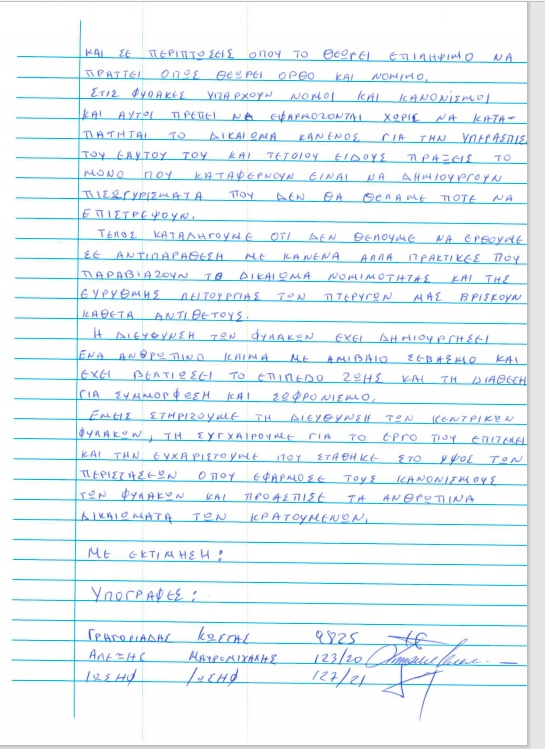 ΚΑΙ ΣΕ ΠΕΡΙΠΤΩΣΕΙΣ ΟΠΟΥ ΤΟ ΘΕΩΡΕΙ ΕΠΙΛΗΨΙΜΟ ΝΑ
ΠΡΑΤΤΕΙ ΟΠΩΣ ΘΕΩΡΕΙ ΟΡΘΟ ΚΑΙ ΝΟΜΙΜΟ.
ΣΤΙΣ ΦΥΛΑΚΕΣ ΥΠΑΡΧΟΥΝ ΝΟΜΟΙ ΚΑΙ ΚΑΝΟΝΙΣΜΟΙ
ΚΑΙ ΑΥΤΟΙ ΠΡΕΠΕΙ ΝΑ ΕΦΑΡΜΟΖΟΝΤΑΙ ΧΩΡΙΣ ΝΑ ΚΑΤΑ-
ΠΑΤΗΤΑΙ ΤΟ ΔΙΚΑΙΩΜΑ ΚΑΝΕΝΟΣ ΓΙΑ ΤΗΝ ΥΠΕΡΑΣΠΙΣ
ΤΟΥ ΕΑΥΤΟΥ ΤΟΥ ΚΑΙ ΤΕΤΟΙΟΥ ΕΙΔΟΥΣ ΠΡΑΞΕΙΣ ΤΟ
ΜΟΝΟ ΠΟΥ ΚΑΤΑΦΕΡΝΟΥΝ ΕΙΝΑΙ ΝΑ ΔΗΜΙΟΥΡΓΟΥΝ
ΠΙΣΩΓΥΡΙΣΜΑΤΑ ΠΟΥ ΔΕΝ ΘΑ ΘΕΛΑΜΕ ΠΟΤΕ ΝΑ
ΕΠΙΣΤΡΕΨΟΥΝ.
ΤΕΛΟΣ ΚΑΤΑΛΗΓΟΥΜΕ ΟΤΙ ΔΕΝ ΘΕΛΟΥΜΕ ΝΑ ΕΡΘΟΥΜΕ
ΣΕ ΑΝΤΙΠΑΡΑΘΕΣΗ ΜΕ ΚΑΝΕΝΑ ΑΛΛΑ ΠΡΑΚΤΙΚΕΣ ΠΟΥ
ΠΑΡΑΒΙΑΖΟΥΝ ΤΟ ΔΙΚΑΙΩΜΑ ΝΟΜΙΜΟΤΗΤΑΣ ΚΑΙ ΤΗΣ
ΕΥΡΥΘΜΗΣ ΛΕΙΤΟΥΡΓΙΑΣ ΤΩΝ ΠΤΕΡΥΓΩΝ ΜΑΣ ΒΡΙΣΚΟΥΝ
ΚΑΘΕΤΑ ΑΝΤΙΘΕΤΟΥΣ.
Η ΔΙΕΥΘΥΝΣΗ ΤΩΝ ΦΥΛΑΚΩΝ ΕΧΕΙ ΔΗΜΙΟΥΡΓΗΣΕΙ
ΕΝΑ ΑΝΘΡΩΠΙΝΟ ΚΛΙΜΑ ΜΕ ΑΜΙΒΑΙΟ ΣΕΒΑΣΜΟ ΚΑΙ
ΕΧΕΙ ΒΕΛΤΙΩΣΕΙ ΤΟ ΕΠΙΠΕΔΟ ΖΩΗΣ ΚΑΙ ΤΗ ΔΙΑΘΕΣΗ
ΓΙΑ ΣΥΜΜΟΡΦΩΣΗ ΚΑΙ ΣΩΦΡΟΝΙΣΜΟ.
ΕΜΕΙΣ ΣΤΗΡΙΖΟΥΜΕ ΤΗ ΔΙΕΥΘΥΝΣΗ ΤΩΝ ΚΕΝΤΡΙΚΩΝ
ΦΥΛΑΚΩΝ, ΤΗ ΣΥΓΧΑΙΡΟΥΜΕ ΓΙΑ ΤΟ ΕΡΓΟ ΠΟΥ ΕΠΙΤΕΛΕΙ
ΚΑΙ ΤΗΝ ΕΥΧΑΡΙΣΤΟΥΜΕ ΠΟΥ ΣΤΑΘΗΚΕ ΣΤΟ ΥΨΟΣ ΤΩΝ
ΠΕΡΙΣΤΑΣΕΩΝ ΟΠΟΥ ΕΦΑΡΜΟΣΕ ΤΟΥΣ ΚΑΝΟΝΙΣΜΟΥΣ
ΤΩΝ ΦΥΛΑΚΩΝ ΚΑΙ ΠΡΟΑΣΠΙΣΕ ΤΑ ΑΝΘΡΩΠΙΝΑ
ΔΙΚΑΙΩΜΑΤΑ ΤΩΝ ΚΡΑΤΟΥΜΕΝΩΝ.
ΜΕ ΕΚΤΙΜΗΣΗ:
ΥΠΟΓΡΑΦΕΣ:
ΓΡΑΓΟΡΙΑΔΑΣ ΚΩΣΤΗΣ 9825
ΑΛΕΞΗΣ ΜΑΥΡΟΜΙΧΑΛΗΣ 123/20
ΙΩΣΗΦ ΙΩΣΗΦ 127/21